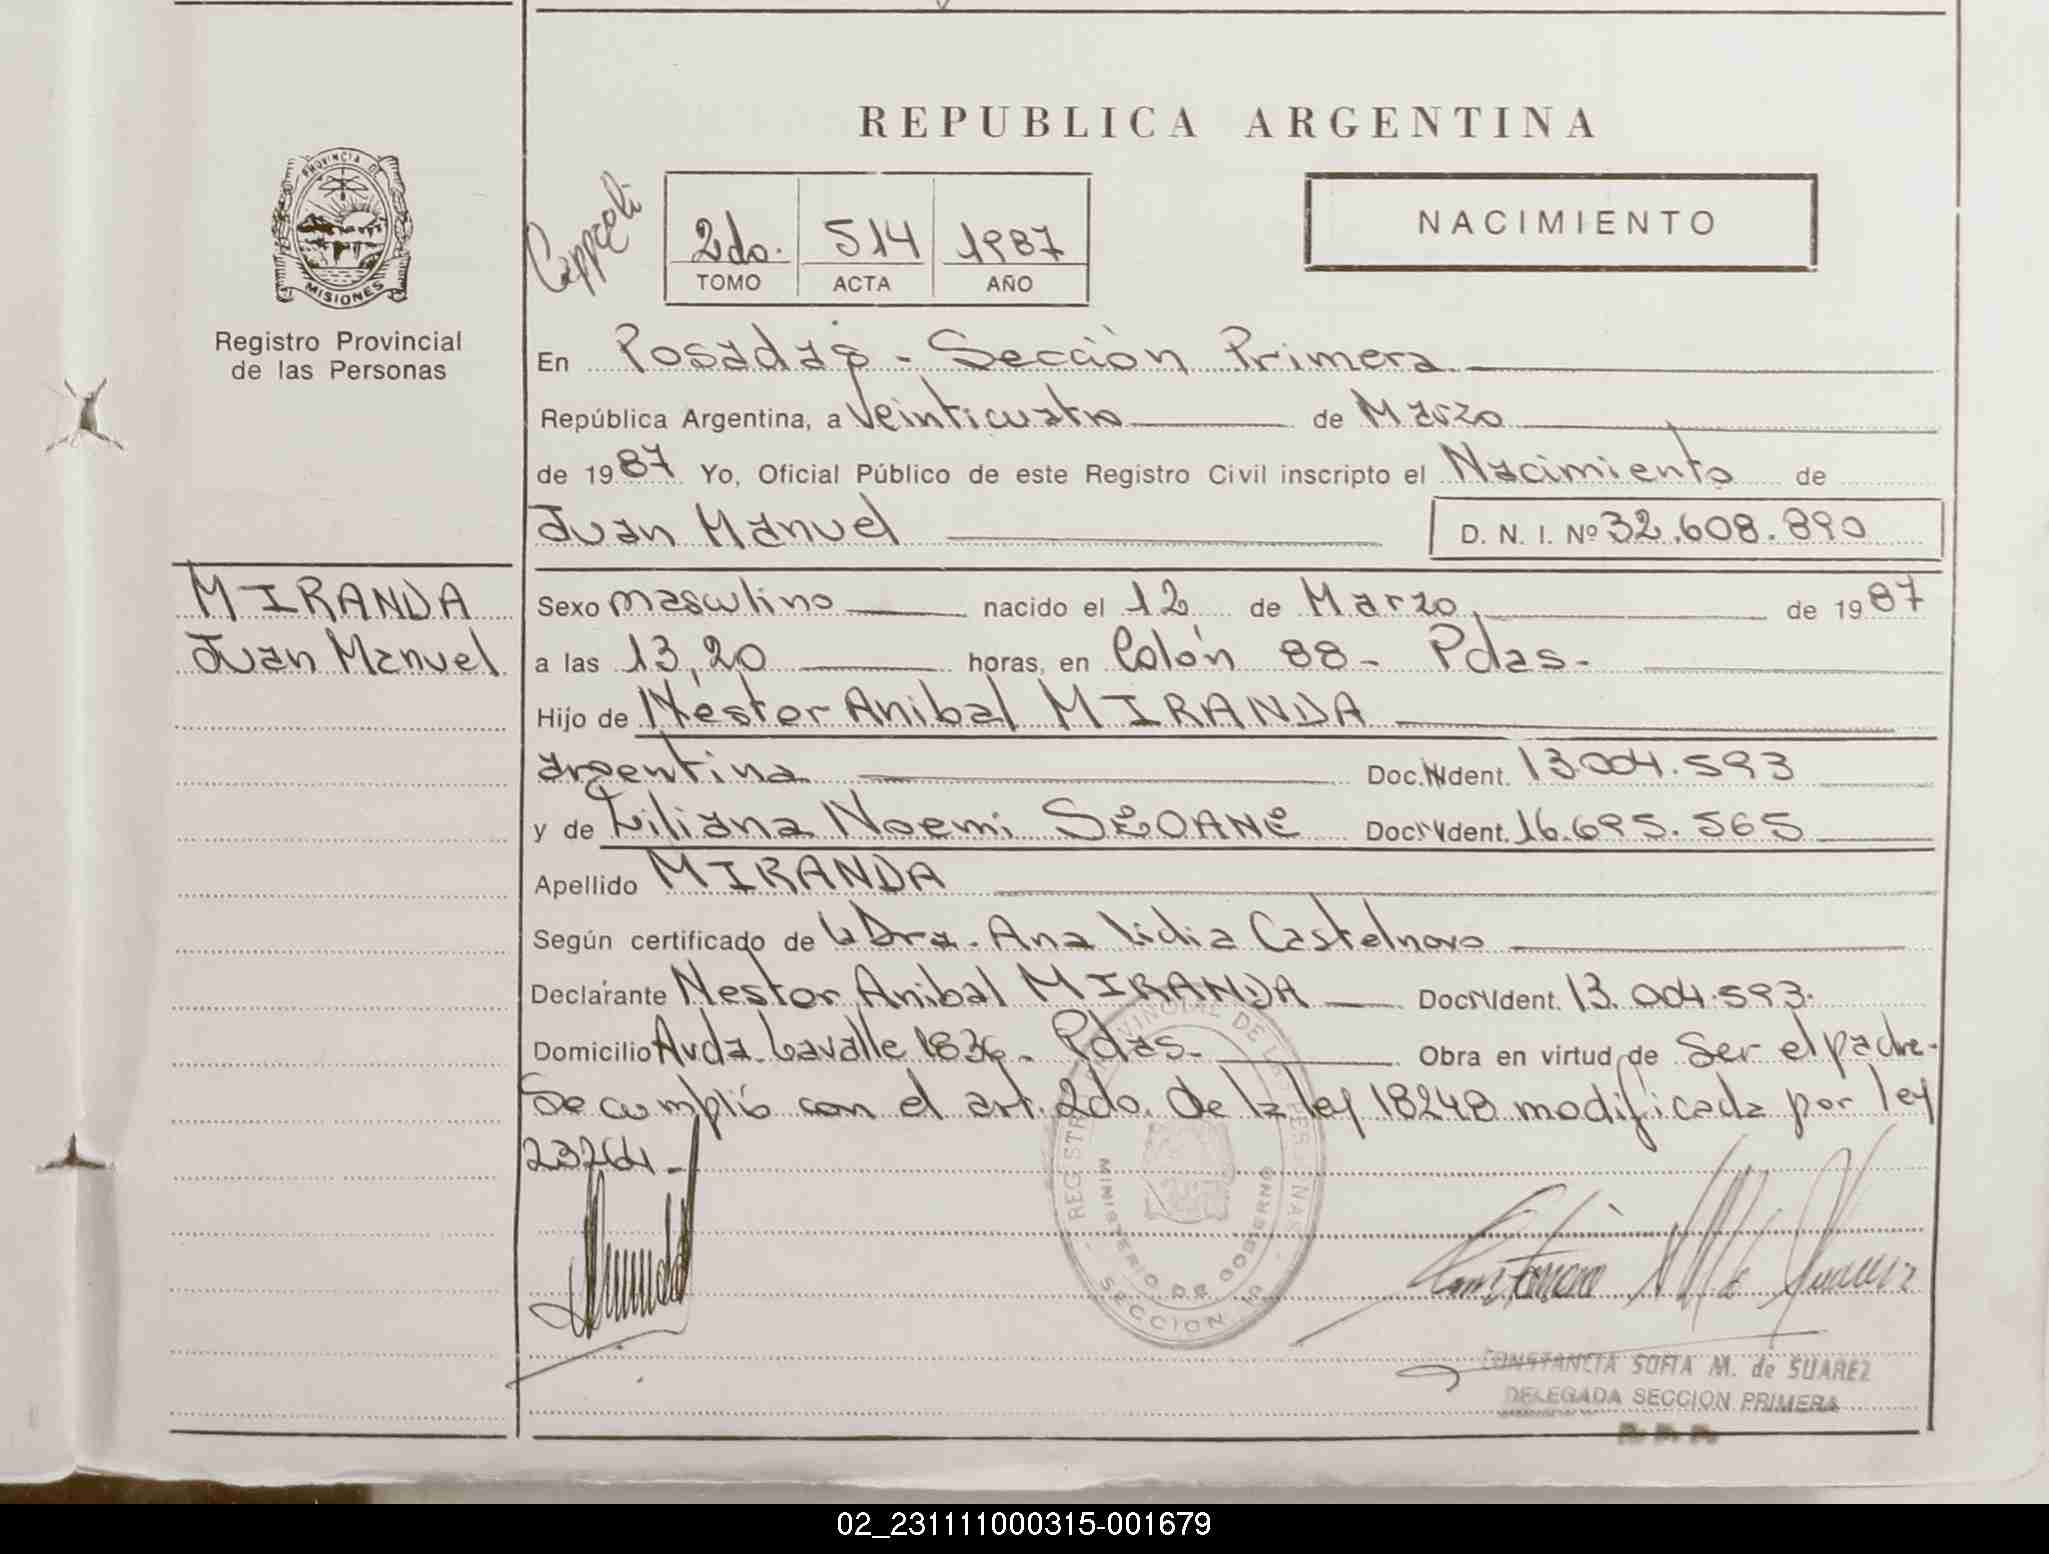 REPUBLICA ARGENTINA
PROVINCIA DE
MISIONES
Registro Provincial
de las Personas
2do. 514 1987
TOMO ACTA AÑO
NACIMIENTO
En Posadas - Sección Primera
República Argentina, a Veinticuatro de Marzo
de 1987 Yo, Oficial Público de este Registro Civil inscripto el Nacimiento de
Juan Manuel D. N. I. Nº 32.608.890
MIRANDA
Juan Manuel
Sexo masculino nacido el 12 de Marzo de 1987
a las 13,20 horas, en Colón 88 - Pdas -
Hijo de Néstor Anibal MIRANDA
argentina Doc. Ident. 13.004.593
y de Liliana Noemi SEOANE Doc. Ident. 16.695.565
Apellido MIRANDA
Según certificado de la Dra. Ana Lidia Castelnovo
Declarante Nestor Anibal MIRANDA Doc. Ident. 13.004.593.
Domicilio Avda. Lavalle 1836 - Pdas - Obra en virtud de Ser el padre -
Se cumplió con el art. 2do. de la ley 18248 modificada por ley
23264 -
REGISTRO PROVINCIAL DE LAS PERSONAS
MINISTERIO DE GOBIERNO
SECCION 1A
CONSTANCIA SOFIA M. de SUAREZ
DELEGADA SECCION PRIMERA
02_231111000315-001679